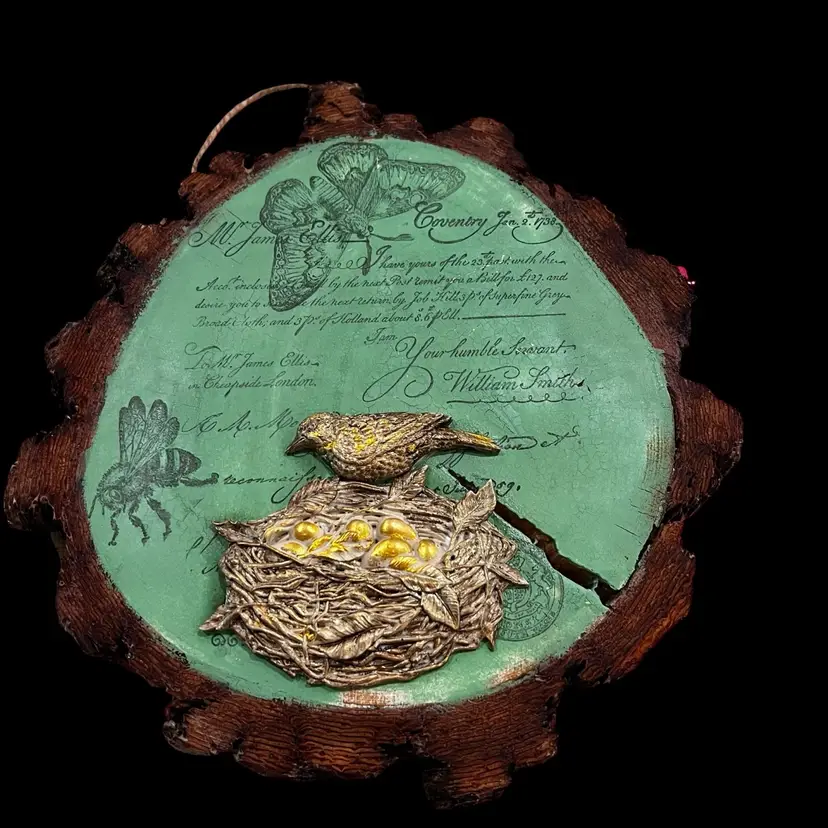 Mr. James Ellis Coventry Jan. 2th. 1738.
I have yours of the 23 past with the
Acco.t inclosed by the next Post remit you a Bill for £127. and
desire you to the next return by Job Hill 3 ps. of Superfine Grey
Broad Cloth, and 5 ps. of Holland about 8.6 p Ell.
I am
Your humble Servant.
To Mr. James Ellis William Smith.
in Cheapside London.
reconnaiss 59.